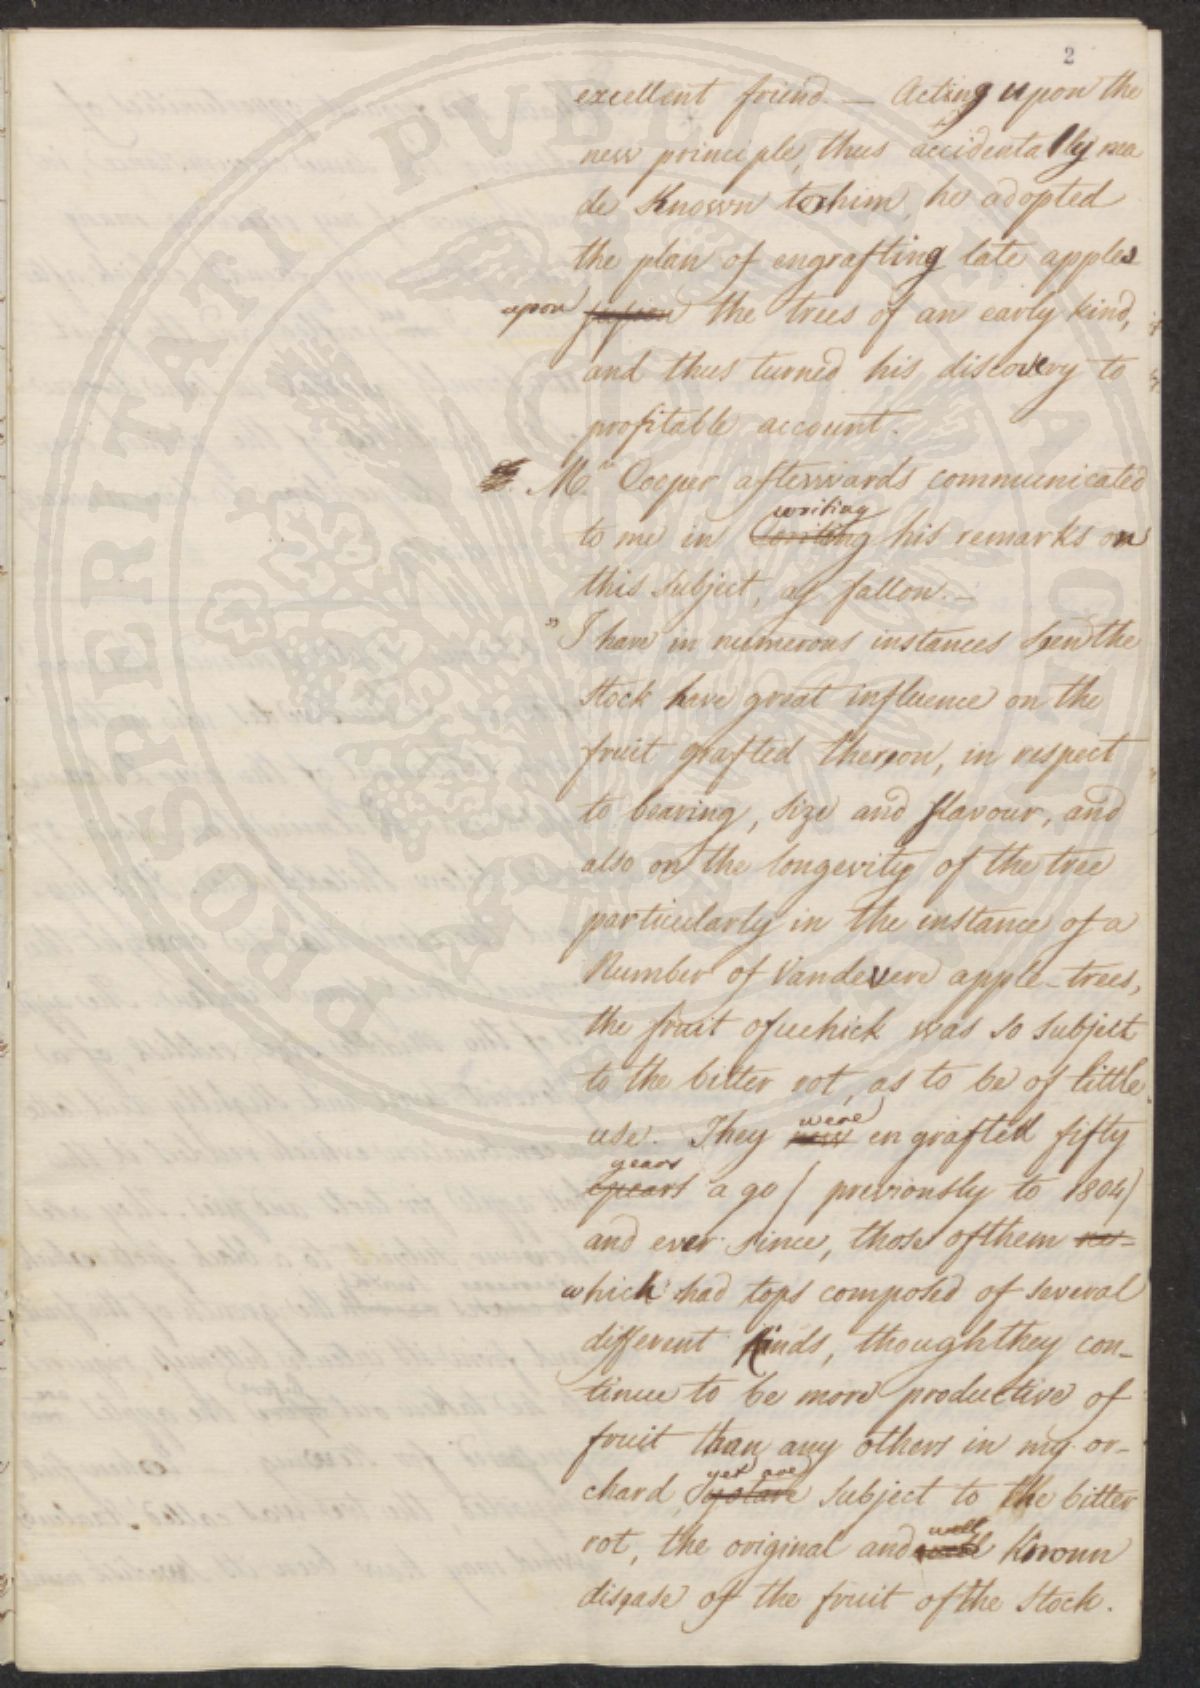 2
excellent friend. — Acting upon the
new principle, thus accidentally ma
de Known to him, he adopted
the plan of engrafting late apples
upon the trees of an early kind,
and thus turned his discovery to
profitable account.
Mr. Cooper afterwards communicated
writing
to me in his remarks on
this subject, as fallow. —
" I have in numerous instances seen the
stock have great influence on the
fruit grafted thereon, in respect
to bearing, size and flavour, and
also on the longevity of the tree
particularly in the instance of a
Number of Vandevere apple-trees,
the fruit of which was so subject
to the bitter rot, as to be of little
were
use. They engrafted fifty
years
a go ( previously to 1804)
and ever since, those of them
which had tops composed of several
different kinds, though they con-
tinue to be more productive of
fruit than any others in my or-
yet are
chard, subject to the bitter
well
rot, the original and known
disease of the fruit of the stock.
PROSPERITATI PUBLICAE AUGENDAE